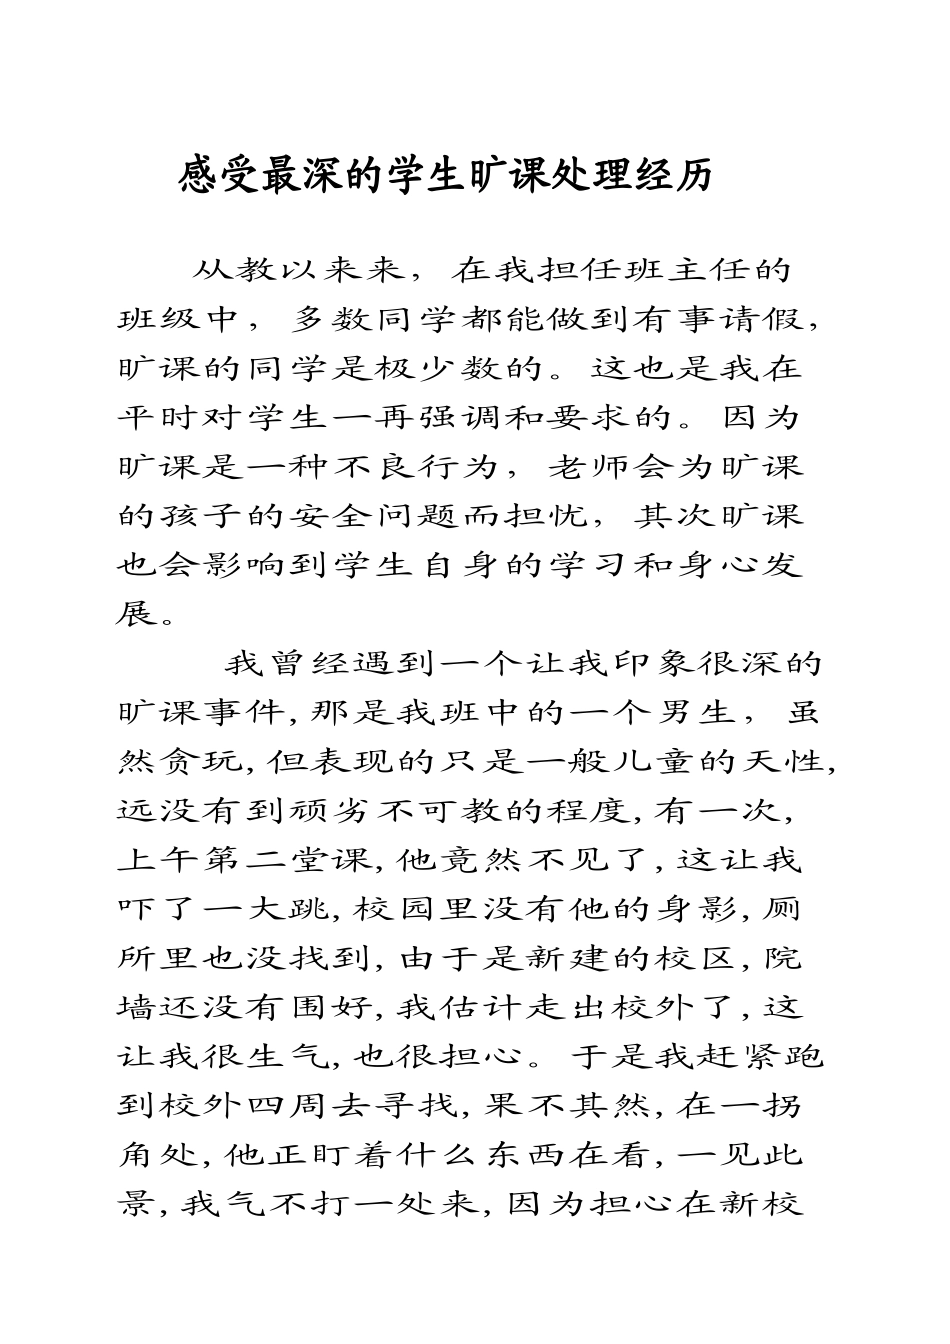 感受最深的学生旷课处理经历
从教以来来，在我担任班主任的
班级中，多数同学都能做到有事请假，
旷课的同学是极少数的。这也是我在
平时对学生一再强调和要求的。因为
旷课是一种不良行为，老师会为旷课
的孩子的安全问题而担忧，其次旷课
也会影响到学生自身的学习和身心发
展。
我曾经遇到一个让我印象很深的
旷课事件,那是我班中的一个男生，虽
然贪玩,但表现的只是一般儿童的天性,
远没有到顽劣不可教的程度,有一次,
上午第二堂课,他竟然不见了,这让我
吓了一大跳,校园里没有他的身影,厕
所里也没找到,由于是新建的校区,院
墙还没有围好,我估计走出校外了,这
让我很生气,也很担心。于是我赶紧跑
到校外四周去寻找,果不其然,在一拐
角处,他正盯着什么东西在看,一见此
景,我气不打一处来,因为担心在新校